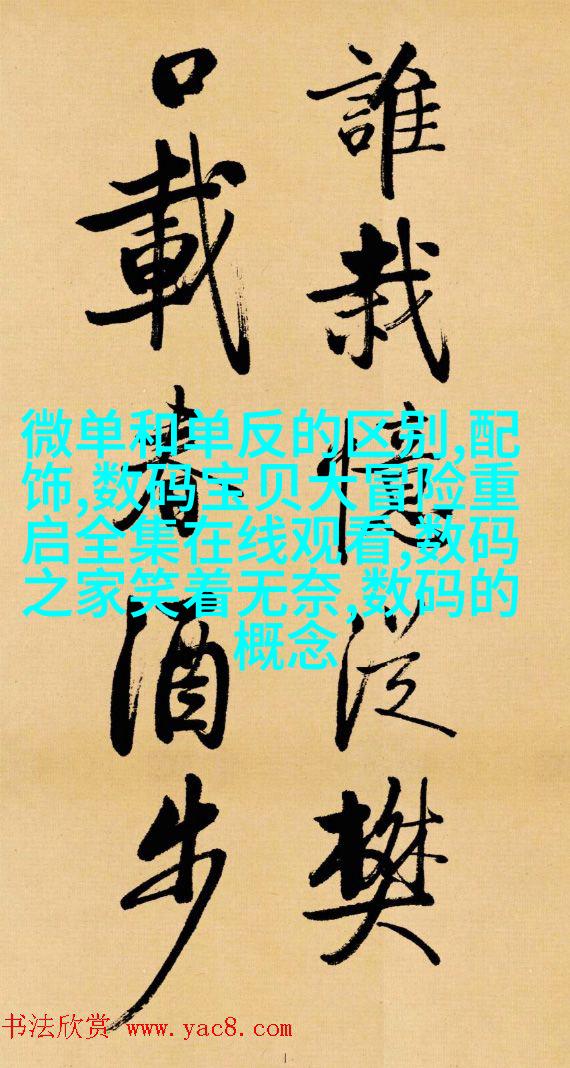 誰栽憶從樊
口載春酒步
微单和单反的区别,配
饰,数码宝贝大冒险重
启全集在线观看,数码
之家笑着无奈,数码的
概念
书法欣赏 www.yac8.com